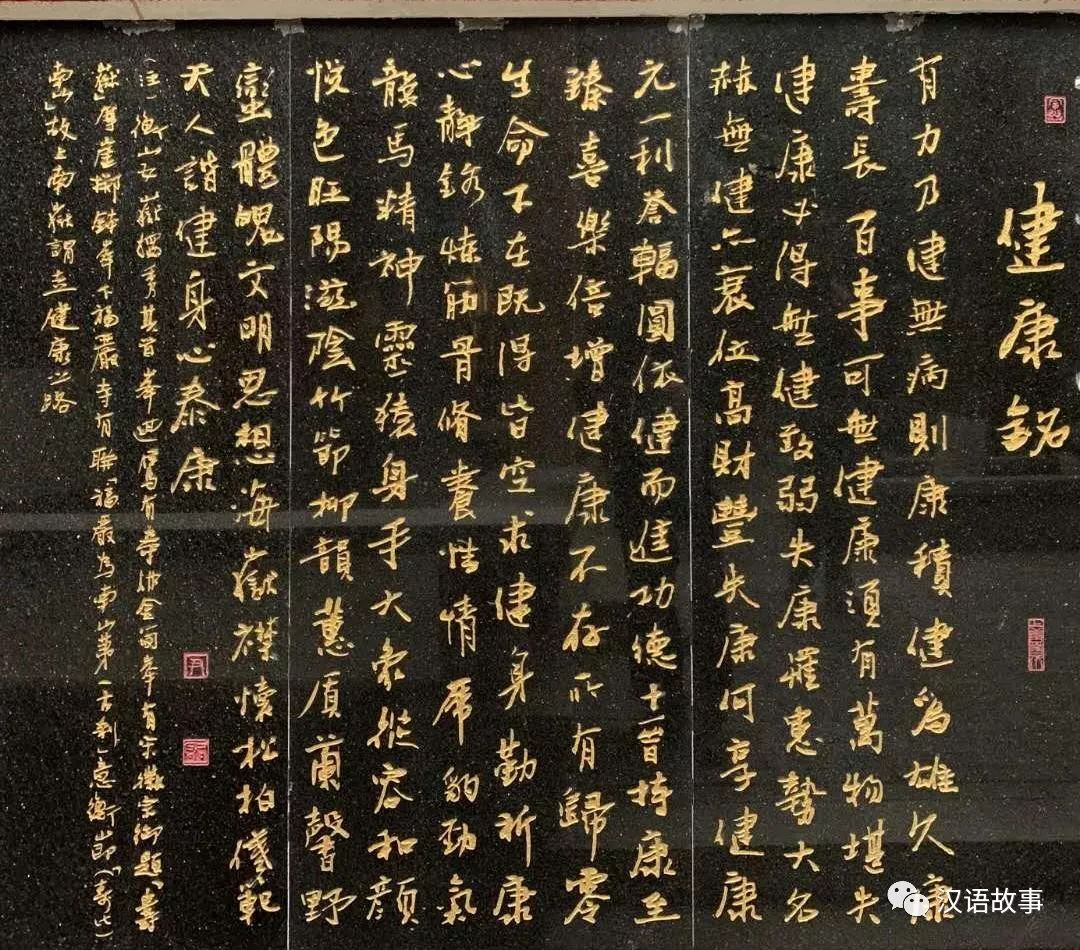 健康銘
有力乃健無病則康積健為雄久康
壽長百事可無健康須有萬物堪失
健康必得無健致弱失康罹患勢大名
赫無健亦衰位高財豐失康何享健康
元一利譽輻圓依健而進功德十首持康至
臻喜樂倍增健康不存所有歸零
生命不在既得皆空求健身勤祈康
心靜鍛煉筋骨脩養性情虎豹勁氣
龍馬精神靈猿身手大象從容和顏
悅色旺陽滋陰竹節柳韻蕙質蘭馨野
蠻體魄文明思想海嶽襟懷松柏儀範
天人諧健身心泰康
(注)衡山五嶽獨秀其首峯迴鴈有峯金有宋徽宗御題「壽
嶽」摩崖擲缽峯下福嚴寺有聯「福嚴為南山第一古刹」意衡山即「壽比
南山」故上南嶽謂走健康之路
汉语故事